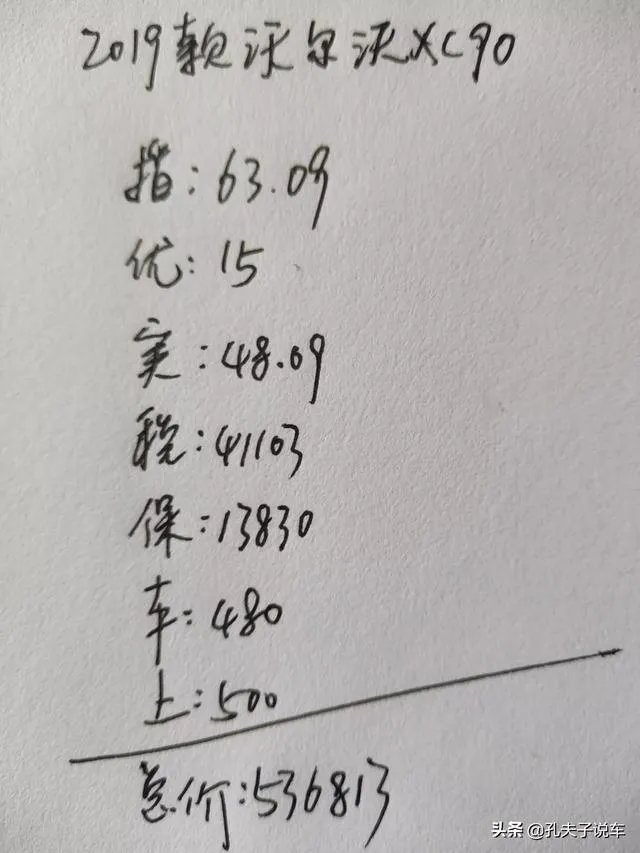 2019款沃尔沃XC90
指:63.09
优:15
实:48.09
税:41103
保:13830
车:480
上:500
总价:536813
头条 @孔夫子说车